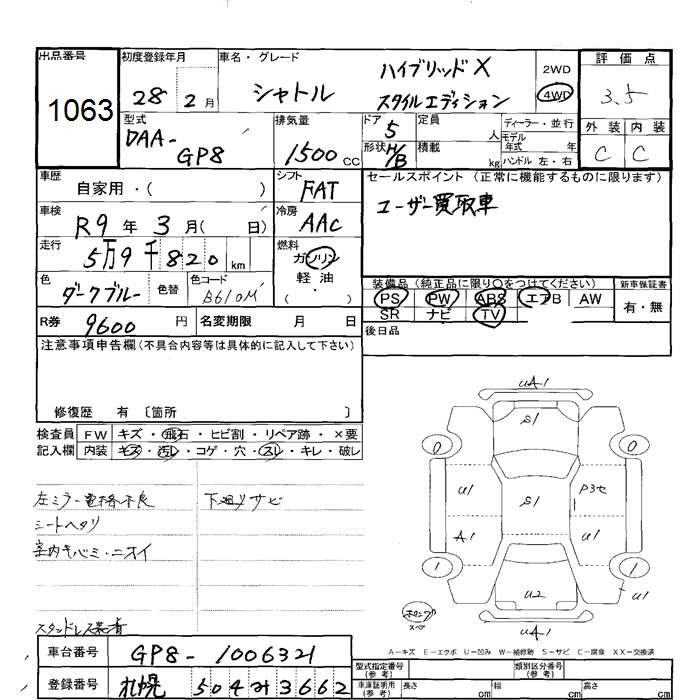 出品番号
1063
初度登録年月
28年 2月
車名・グレード
シャトル
ハイブリッドX
スタイルエディション
2WD
4WD
評価点
3.5
外装 内装
C C
型式
DAA-
GP8
排気量
1500 CC
ドア 5
形状 H/B
定員 人
積載 kg
ディーラー・並行
モデル年式 年
ハンドル 左・右
車歴
自家用・( )
シフト
FAT
セールスポイント (正常に機能するものに限ります)
ユーザー買取車
車検
R9年 3月( 日)
冷房
AAC
走行
5万9千820 km
燃料
ガソリン
軽油
・
色
ダークブルー
色替
色コード
B610M
装備品 (純正品に限り○をつけてください)
PS PW ABS エアB AW
SR ナビ TV
新車保証書
有・無
R券 9600 円
名変期限 月 日
後日品
注意事項申告欄(不具合内容等は具体的に記入して下さい)
修復歴 有 〔箇所 〕
検査員記入欄
FW キズ・飛石・ヒビ割・リペア跡・×要
内装 キズ・汚レ・コゲ・穴・スレ・キレ・破レ
左ミラー電格不良 下廻りサビ
シートヘタリ
室内キバミ・ニオイ
スタッドレス装着
UA1
S1
0 0
U1 S1 P3セ
A1 U1
1 1
U2 U1
UA1
スペア
A-キズ E-エクボ U-凹み W-補修跡 S-サビ C-腐食 XX-交換済
車台番号 GP8-1006321
登録番号 札幌 504 れ 3662
型式指定番号(参考)
類別区分番号(参考)
車庫証明用(参考) 長さ cm 幅 cm 高さ cm